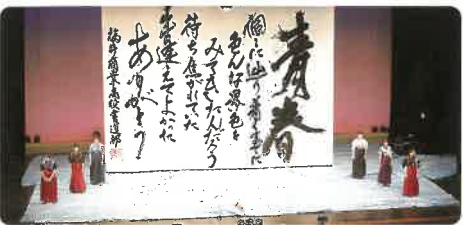 青春
個々に辿り着くまでに
色んな景色を
みてきたんだろう
待ち焦がれていた
出逢えてよかった
ありがとう
福井商業高校書道部